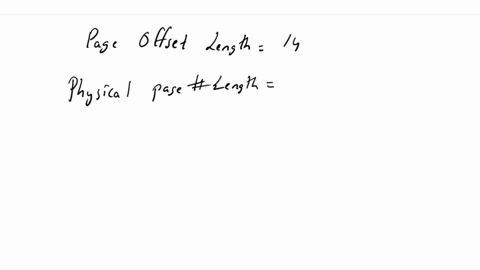 Page Offset Length = 14
Physical page # Length =